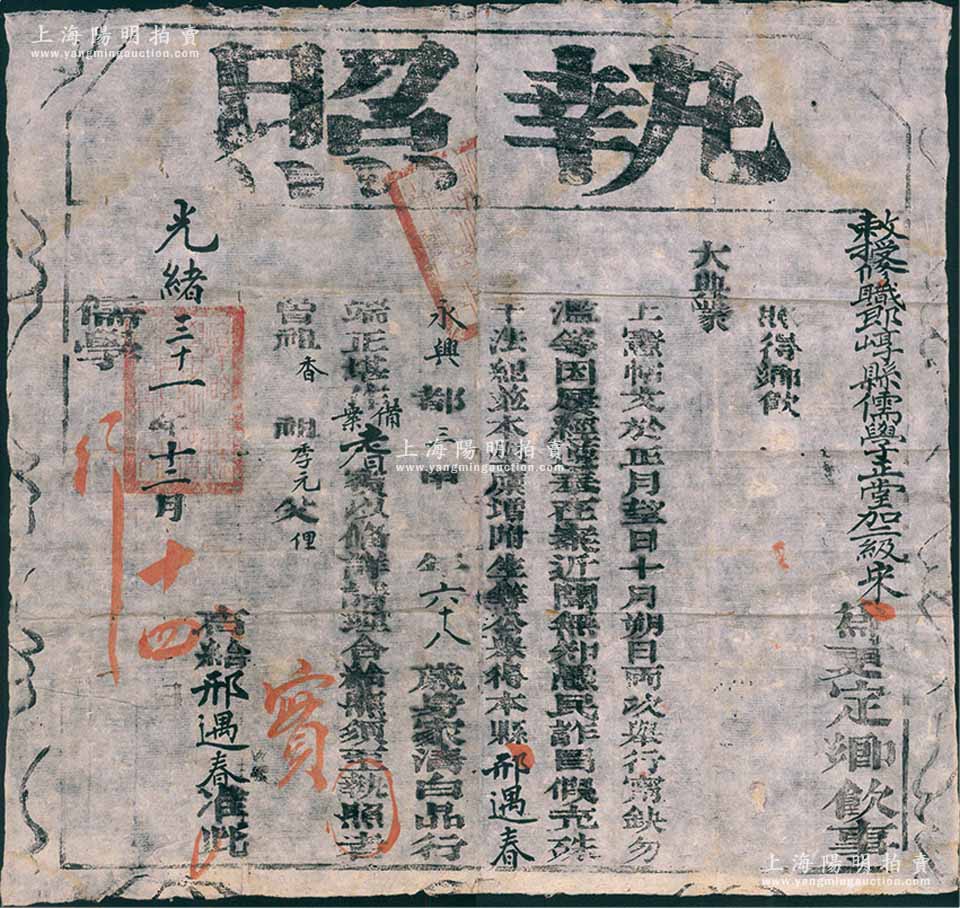 執照
敕授修職郎嵊縣儒學正堂加一級宋 為更定鄉飲事
照得鄉飲
大典蒙
上憲帖文於正月望日十月朔日兩次舉行寧缺勿
濫等因歷經遵奉在案近聞無知愚民詐冒假充殊
干法紀並本縣廩增附生等公舉得本縣邢遇春
永興都三面年六十八歲身家清白品行
端正堪作備案耆賓以修詳合給照須至執照者
曾祖香 祖季元父俚
右給邢遇春准此
光緒三十一年十二月十四
儒學
行
實
上海陽明拍賣
www.yangmingauction.com
上海陽明拍賣
www.yangmingauction.com
上海陽明拍賣
www.yangmingauction.com